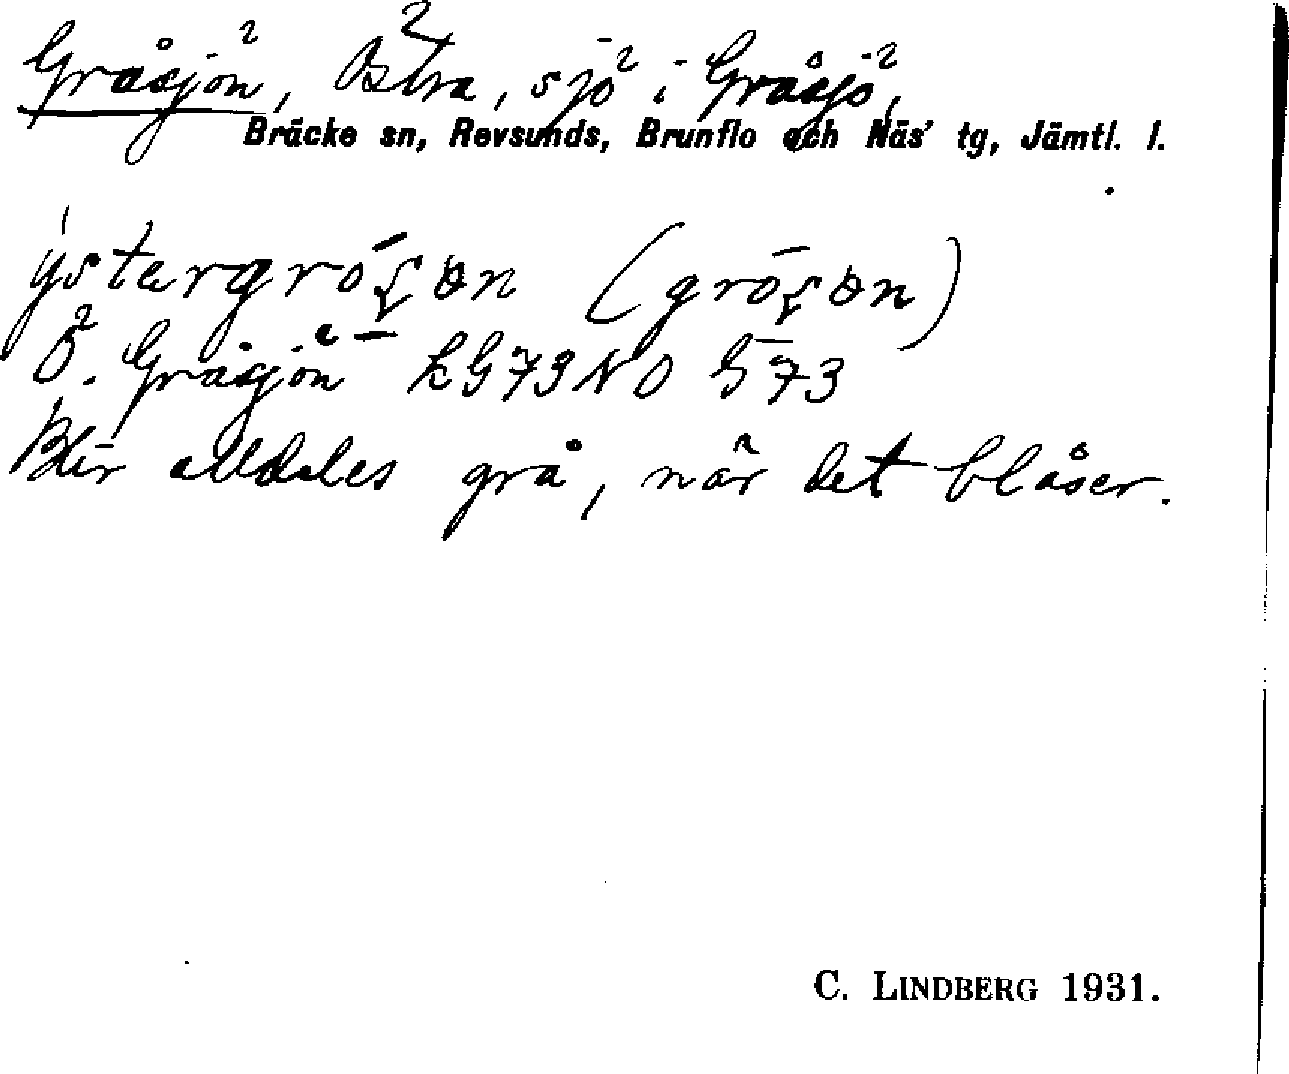 Gråsjön, Östra, sjö i Gråsjö,
Bräcke sn, Revsunds, Brunflo och Näs' tg, Jämtl. l.
Ö. Gråsjön LG 73 NO G 73
Blir alldeles grå, när det blåser.
C. LINDBERG 1931.